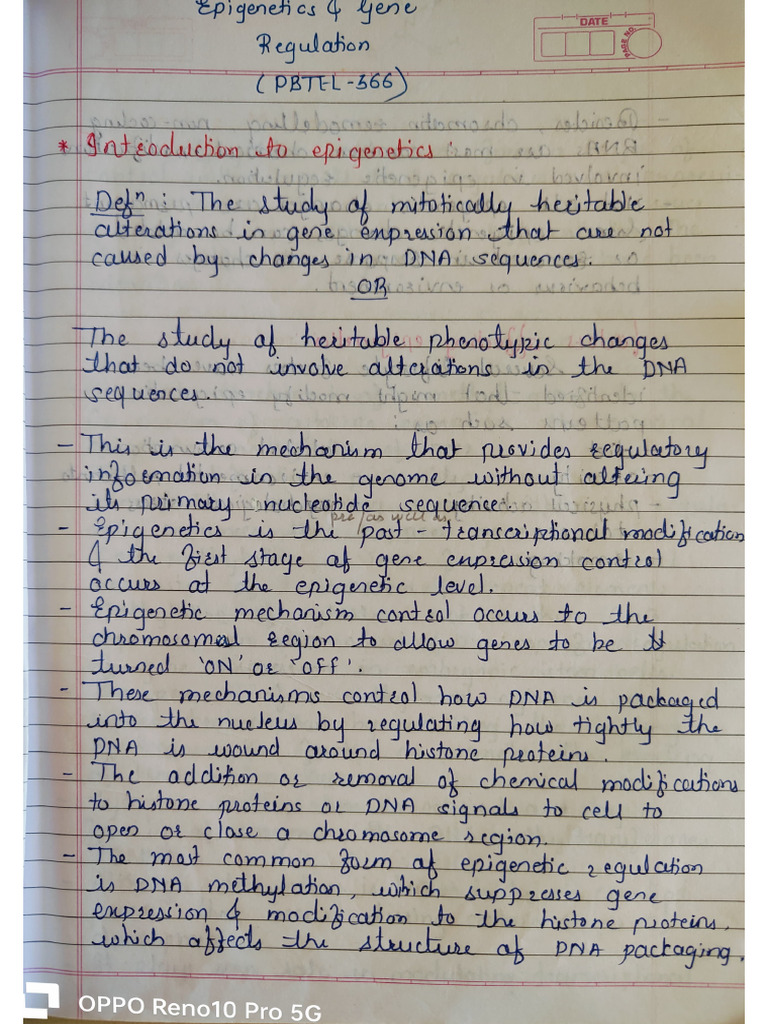 Epigenetics & Gene
Regulation
(PBTEL-366)
DATE
PAGE NO
* Introduction to epigenetics :
Defⁿ : The study of mitotically heritable
alterations in gene expression that are not
caused by changes in DNA sequences.
OR
The study of heritable phenotypic changes
that do not involve alterations in the DNA
sequences.
- This is the mechanism that provides regulatory
information in the genome without altering
its primary nucleotide sequence.
pre/as well as
- Epigenetics is the post-transcriptional modification
& the first stage of gene expression control
occurs at the epigenetic level.
- Epigenetic mechanism control occurs to the
chromosomal region to allow genes to be
turned 'ON' or 'OFF'.
- These mechanisms control how DNA is packaged
into the nucleus by regulating how tightly the
DNA is wound around histone proteins.
- The addition or removal of chemical modifications
to histone proteins or DNA signals to cell to
open or close a chromosome region.
- The most common form of epigenetic regulation
is DNA methylation, which suppresses gene
expression & modification to the histone proteins,
which affects the structure of DNA packaging.
OPPO Reno10 Pro 5G